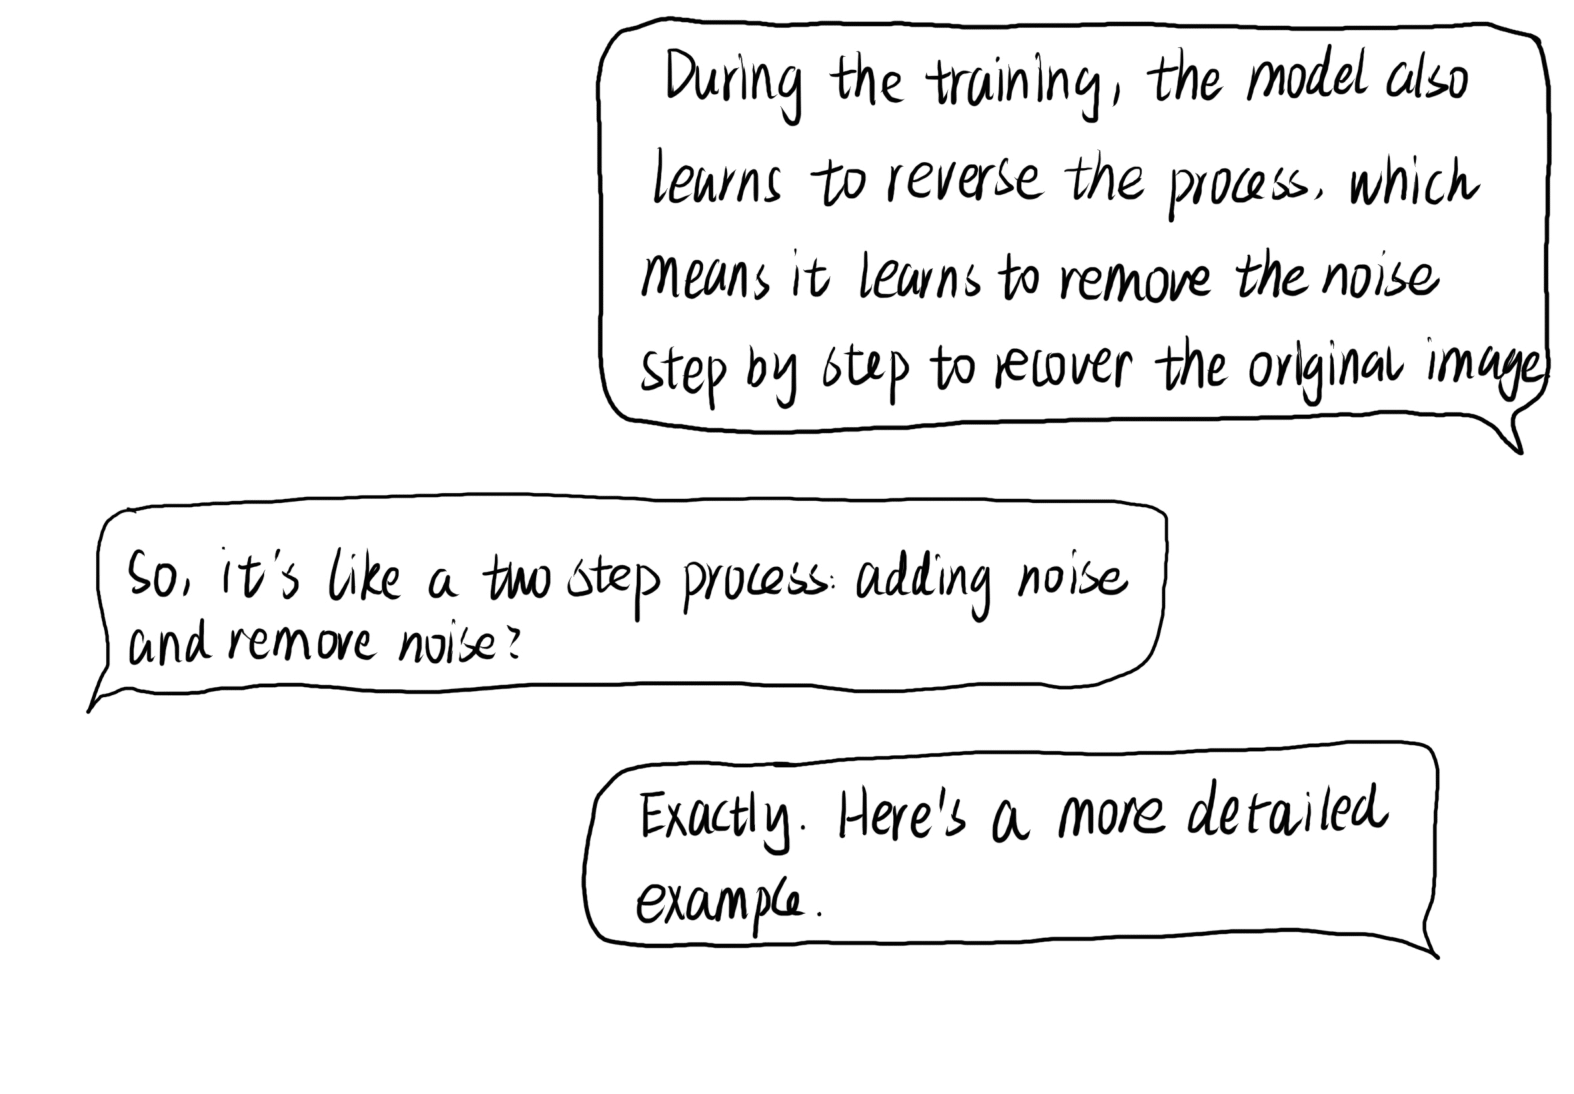 During the training, the model also
learns to reverse the process, which
means it learns to remove the noise
step by step to recover the original image
So, it's like a two step process: adding noise
and remove noise?
Exactly. Here's a more detailed
example.